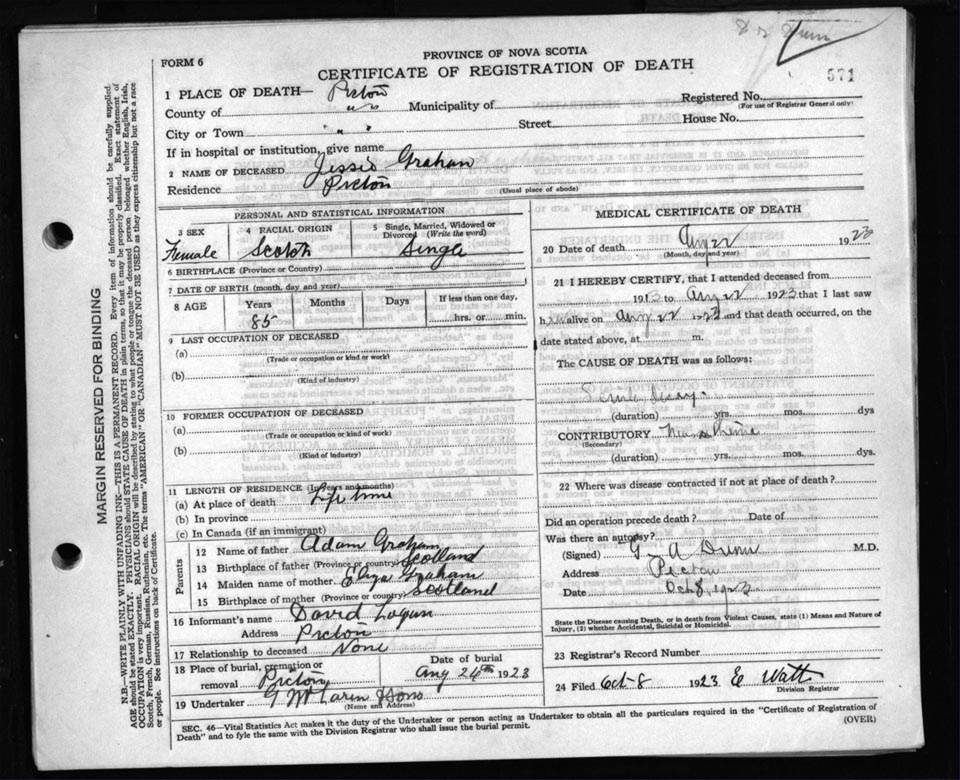 Dr Dunn
571
FORM 6
PROVINCE OF NOVA SCOTIA
CERTIFICATE OF REGISTRATION OF DEATH
1 PLACE OF DEATH— Pictou
Registered No.
(For use of Registrar General only)
County of " Municipality of
City or Town " " Street House No.
If in hospital or institution, give name
2 NAME OF DECEASED Jessie Graham
Residence Pictou (Usual place of abode)
PERSONAL AND STATISTICAL INFORMATION
3 SEX
Female
4 RACIAL ORIGIN
Scotch
5 Single, Married, Widowed or Divorced (Write the word)
Single
6 BIRTHPLACE (Province or Country)
7 DATE OF BIRTH (month, day and year)
8 AGE Years Months Days If less than one day,
85 hrs. or min.
9 LAST OCCUPATION OF DECEASED
(a)
(Trade or occupation or kind or work)
(b)
(Kind of industry)
10 FORMER OCCUPATION OF DECEASED
(a)
(Trade or occupation or kind or work)
(b)
(Kind of industry)
11 LENGTH OF RESIDENCE (In years and months)
(a) At place of death Life time
(b) In province
(c) In Canada (if an immigrant)
Parents
12 Name of father Adam Graham
13 Birthplace of father (Province or country) Scotland
14 Maiden name of mother Eliza Graham
15 Birthplace of mother (Province or country) Scotland
16 Informant's name David Logan
Address Pictou
17 Relationship to deceased None
18 Place of burial, cremation or removal Pictou
Date of burial
Aug 24th 1923
19 Undertaker
(Name and Address)
MEDICAL CERTIFICATE OF DEATH
20 Date of death Aug 22 1923
(Month, day and year)
21 I HEREBY CERTIFY, that I attended deceased from
1913 to Aug 22 1923 that I last saw
her alive on Aug 22 1923 and that death occurred, on the
date stated above, at m.
The CAUSE OF DEATH was as follows:
Senile decay.
(duration) yrs. mos. dys
CONTRIBUTORY
(Secondary)
(duration) yrs. mos. dys.
22 Where was disease contracted if not at place of death?
Did an operation precede death? Date of
Was there an autopsy?
(Signed) G A Dunn M.D.
Address Pictou
Date Oct 8, 1923
State the Disease causing Death, or in death from Violent Causes, state (1) Means and Nature of
Injury, (2) whether Accidental, Suicidal or Homicidal.
23 Registrar's Record Number
24 Filed Oct 8 1923 E Watt
Division Registrar
SEC. 46—Vital Statistics Act makes it the duty of the Undertaker or person acting as Undertaker to obtain all the particulars required in the "Certificate of Registration of
Death" and to fyle the same with the Division Registrar who shall issue the burial permit. (OVER)
MARGIN RESERVED FOR BINDING
N.B.—WRITE PLAINLY WITH UNFADING INK—THIS IS A PERMANENT RECORD. Every item of information should be carefully supplied.
AGE should be stated EXACTLY. PHYSICIANS should STATE CAUSE OF DEATH in plain terms, so that it may be properly classified. Exact statement of
OCCUPATION is very important. RACIAL ORIGIN will be described by stating to what people or tongue the deceased person belonged whether English, Irish,
Scotch, French, German, Russian, Ruthenian, etc. The terms "AMERICAN" OR "CANADIAN" MUST NOT BE USED as they express citizenship but not a race
or people. See instructions on back of Certificate.